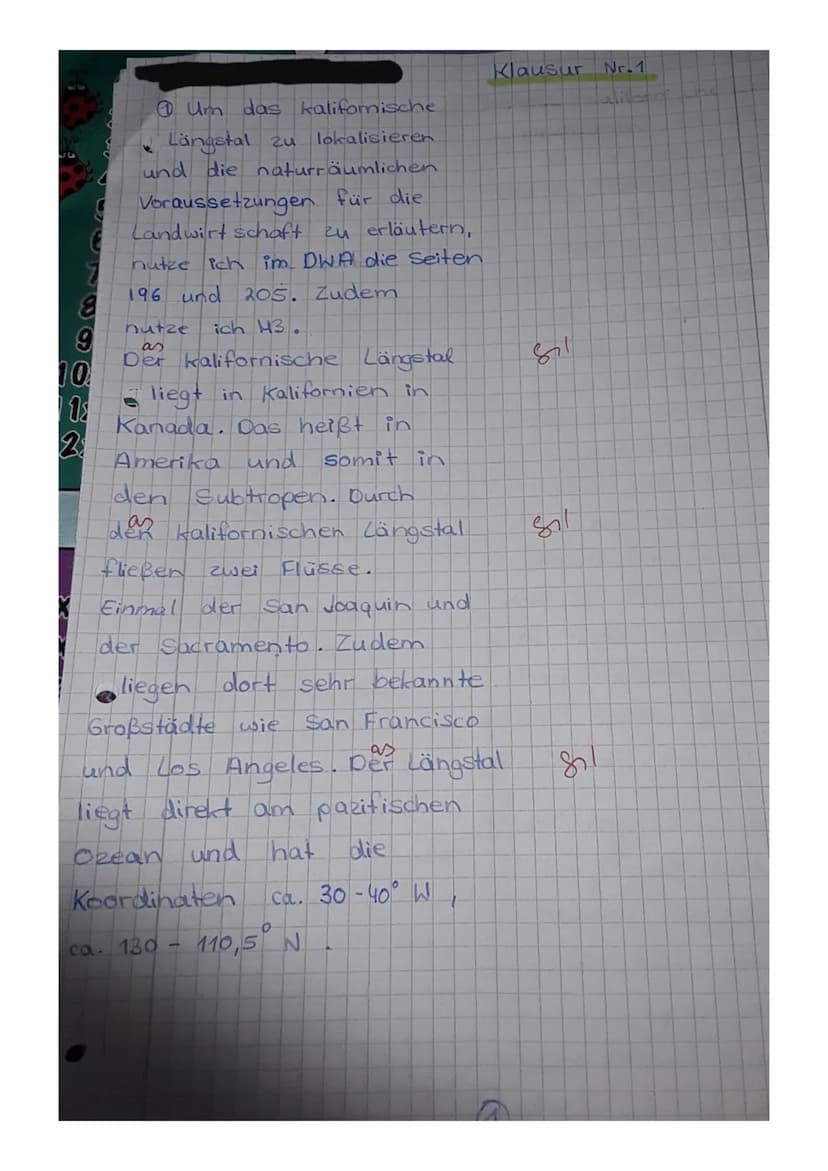 Klausur Nr. 1
① Um das kalifornische
Längstal zu lokalisieren
und die naturräumlichen
Voraussetzungen für die
Landwirtschaft zu erläutern,
nutze ich im DWA die Seiten
196 und 205. Zudem
nutze ich M3.
as
Der kalifornische Längstal
liegt in Kalifornien in
Kanada. Das heißt in
Amerika und somit in
den Subtropen. Durch
as
den kalifornischen Längstal
fließen zwei Flüsse.
Einmal der San Joaquin und
der Sacramento. Zudem
liegen dort sehr bekannte
Großstädte wie San Francisco
as
und Los Angeles. Der Längstal
liegt direkt am pazifischen
Ozean und hat die
Koordinaten ca. 30-40° W,
ca. 130 - 110,5° N.
8
9
10